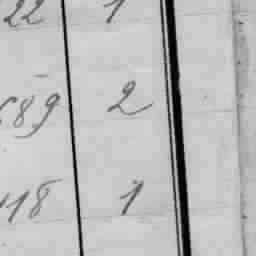 22 1
689 2
118 1